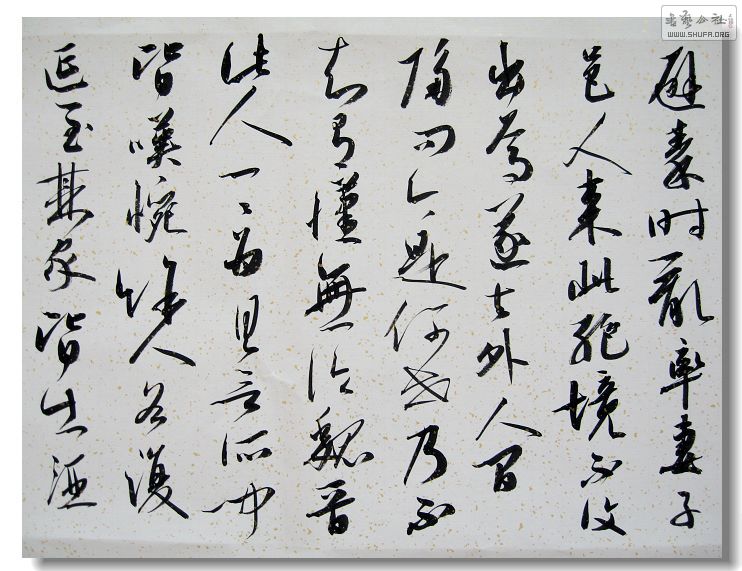 避秦时亂率妻子
邑人来此絕境不復
出焉遂与外人间
隔问今是何世乃不
知有漢無论魏晋
此人一一为具言所闻
皆嘆惋餘人各復
延至其家皆出酒
书艺公社
WWW.SHUFA.ORG